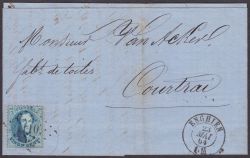 Monsieur Van Ackere
fabt. de toiles
Courtrai
ENGHIEN
MAI
64